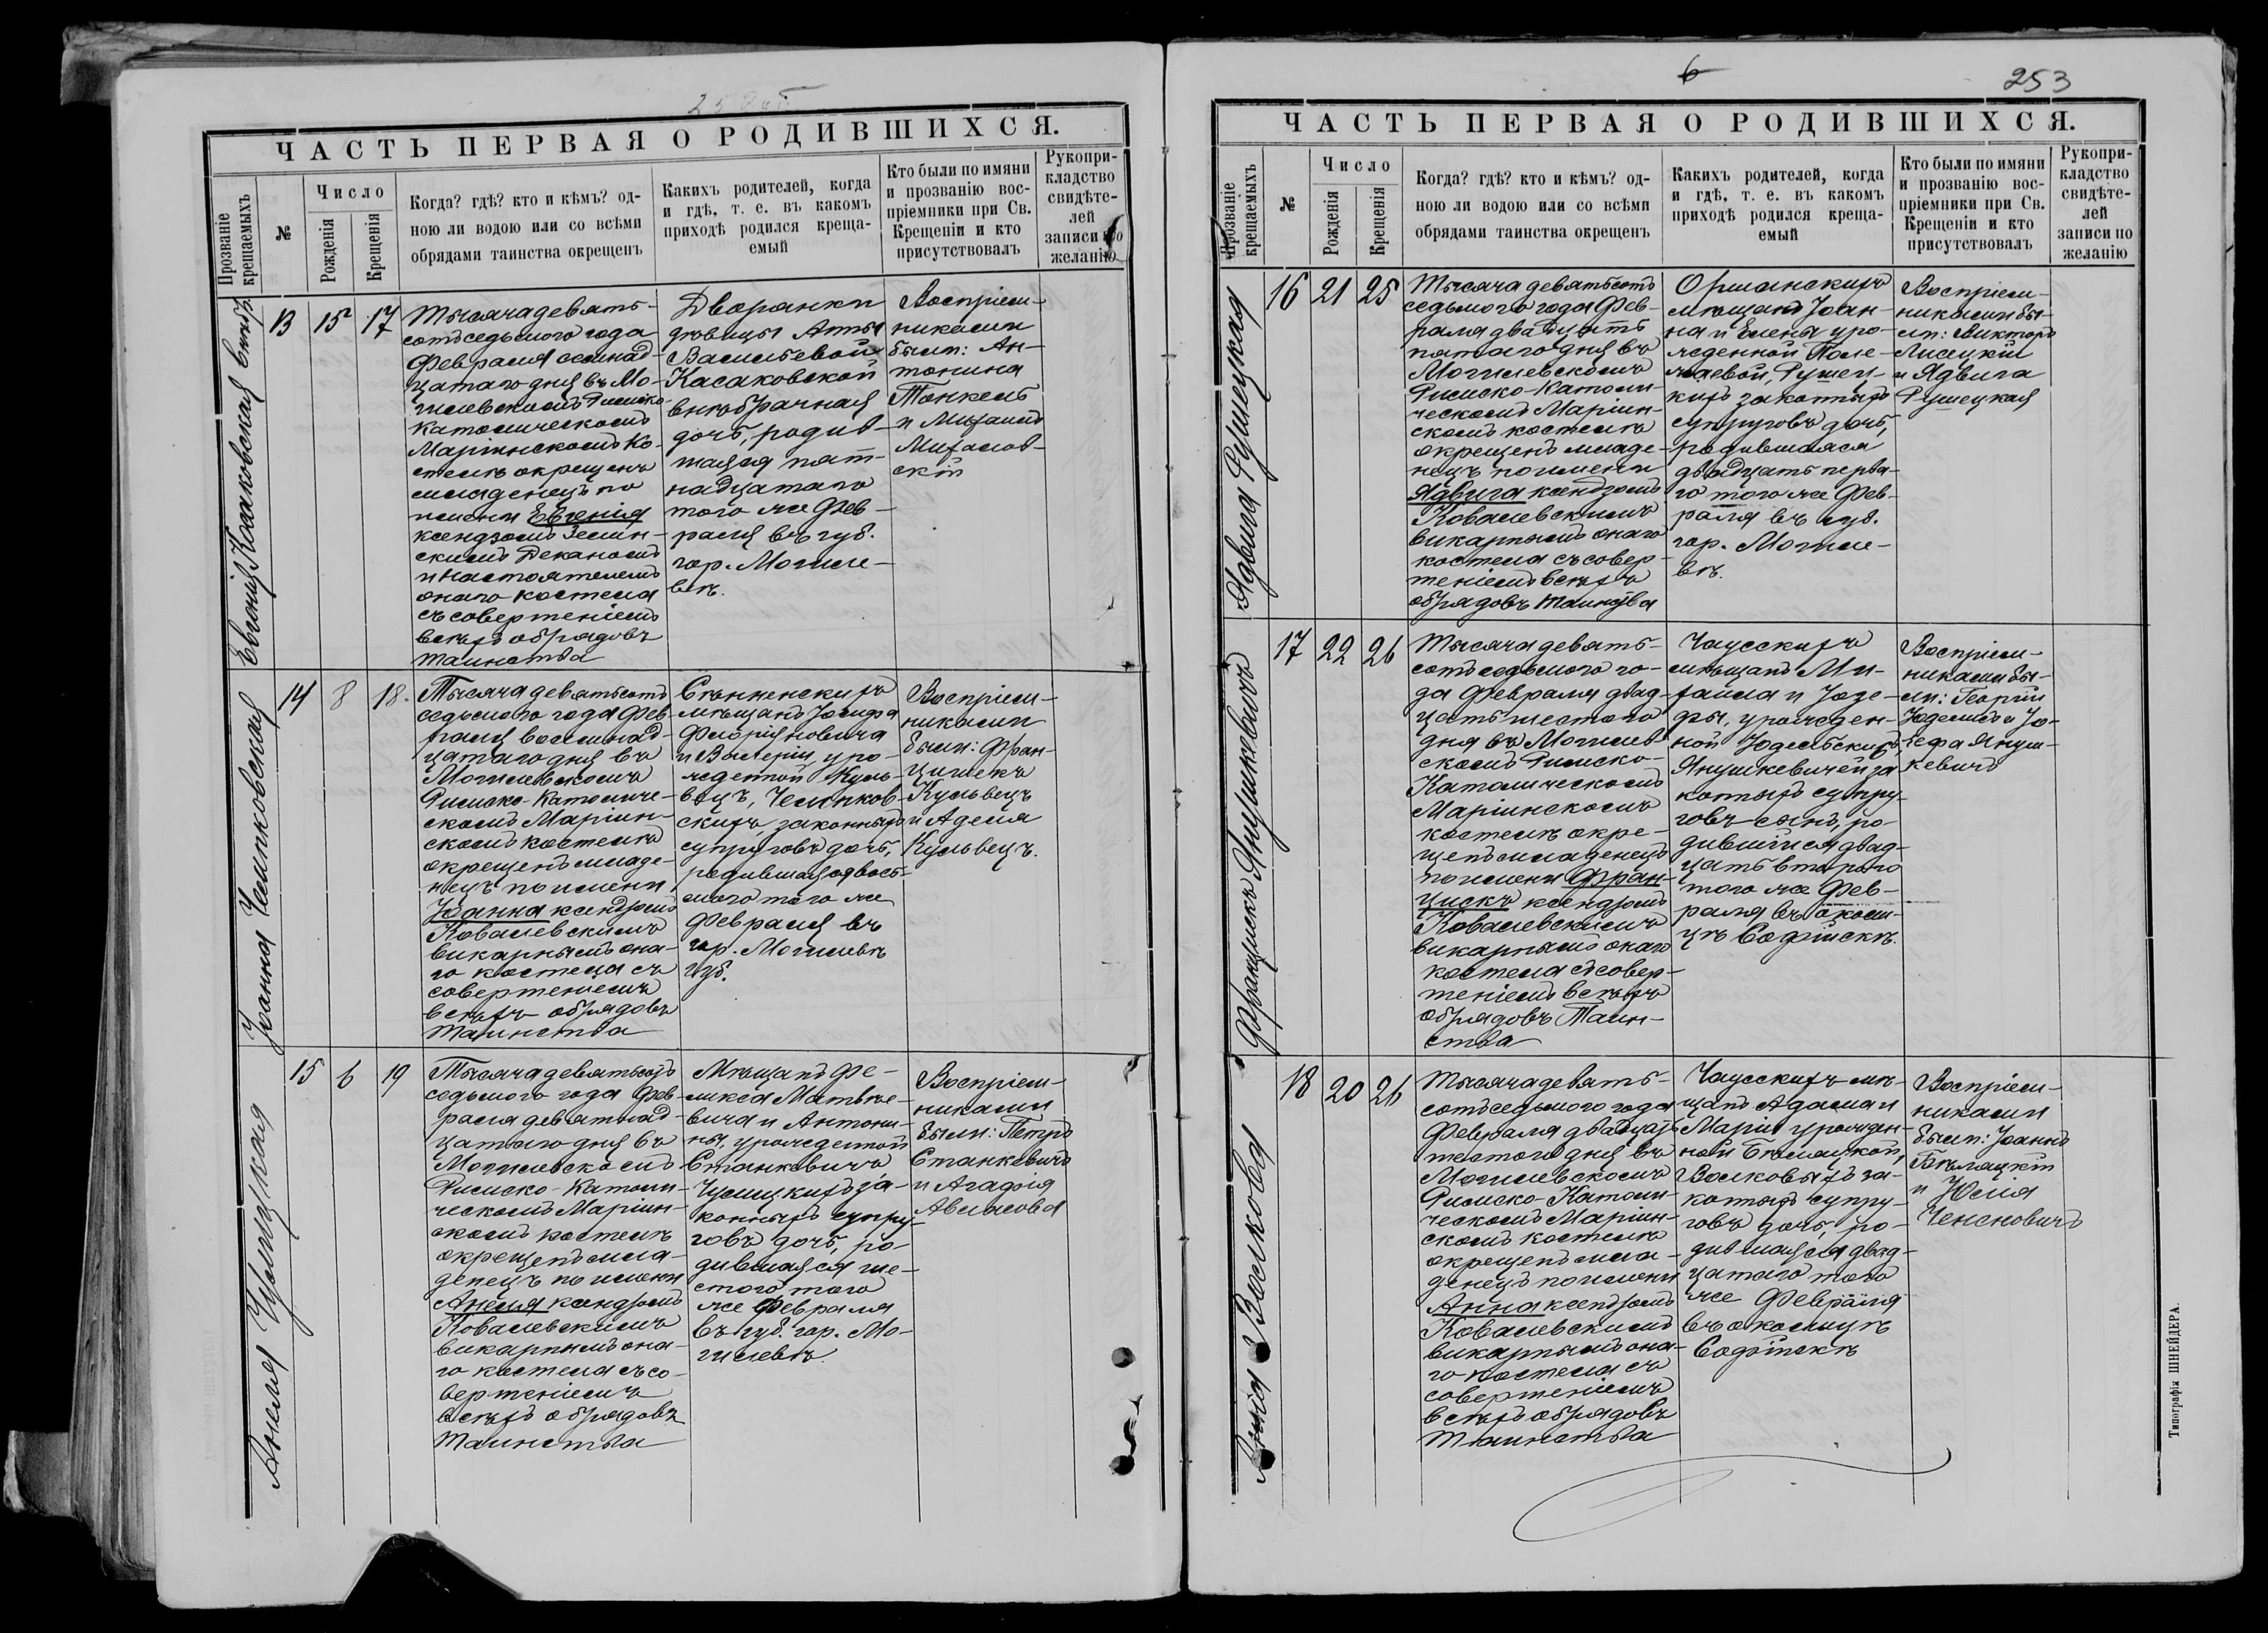 ЧАСТЬ ПЕРВАЯ О РОДИВШИХСЯ.
Прозваніе крещаемыхъ
№
Число
Рожденія
Крещенія
Когда? гдѣ? кто и кѣмъ? од-
ною ли водою или со всѣми
обрядами таинства окрещенъ
Какихъ родителей, когда
и гдѣ, т. е. въ какомъ
приходѣ родился креща-
емый
Кто были по имяни
и прозванію вос-
пріемники при Св.
Крещеніи и кто
присутствовалъ
Рукопри-
кладство
свидѣте-
лей
записи по
желанію
13
15
17
Тысяча девять-
сотъ седьмого года
Февраля семнад-
цатаго дня въ Мо-
гилевскомъ Римско-
Католическомъ
Маріинскомъ Ко-
стелѣ окрещенъ
младенецъ по
имени Евгенія
ксендзомъ
Деканомъ
и настоятелемъ
онаго костела
съ совершеніемъ
всѣхъ обрядовъ
таинства
Дворянки
дѣвицы Анны
Васильевой
Касаковской
внѣбрачная
дочь, родив-
шаяся пят-
надцатаго
того же Фев-
раля въ губ.
гор. Могиле-
вѣ.
Воспріем-
никами
были: Ан-
тонина
Тонкель
и Михаилъ
Михалов-
скій
Іоанна Челинковская
14
8
18.
Тысяча девятьсотъ
седьмого года Фев-
раля восемнад-
цатаго дня въ
Могилевскомъ
Римско-Католиче-
скомъ Маріин-
скомъ костелѣ
окрещенъ младе-
нецъ по имени
Іоанна ксендзомъ
Ковалевскимъ
викарнымъ она-
го костела съ
совершеніемъ
всѣхъ обрядовъ
таинства
Сѣнненскихъ
мѣщанъ Іосифа
Флоріяновича
и Валеріи, уро-
жденной Куль-
вецъ, Челинков-
скихъ законныхъ
супруговъ дочь,
родившаяся вось-
мого того же
Февраля въ
гор. Могилевѣ
губ.
Воспріем-
никами
были: Фран-
цишекъ
Кульвецъ
и Аделя
Кульвецъ.
15
6
19
Тысяча девятьсотъ
седьмого года Фев-
раля девятнад-
цатаго дня въ
Могилевскомъ
Римско-Католи-
ческомъ Маріин-
скомъ костелѣ
окрещенъ мла-
денецъ по имени
Анеля ксендзомъ
Ковалевскимъ
викарнымъ она-
го костела съ со-
вершеніемъ
всѣхъ обрядовъ
таинства
Мѣщанъ Фе-
ликса Матвѣе-
вича и Антони-
ны, урожденной
Станкевичъ
законныхъ супру-
говъ дочь, ро-
дившаяся ше-
стого того
же Февраля
въ губ. гор. Мо-
гилевѣ.
Воспріем-
никами
были: Петръ
Станкевичъ
и Агафія
6
253
ЧАСТЬ ПЕРВАЯ О РОДИВШИХСЯ.
Прозваніе крещаемыхъ
№
Число
Рожденія
Крещенія
Когда? гдѣ? кто и кѣмъ? од-
ною ли водою или со всѣми
обрядами таинства окрещенъ
Какихъ родителей, когда
и гдѣ, т. е. въ какомъ
приходѣ родился креща-
емый
Кто были по имяни
и прозванію вос-
пріемники при Св.
Крещеніи и кто
присутствовалъ
Рукопри-
кладство
свидѣте-
лей
записи по
желанію
Ядвига Рушецкая
16
21
25
Тысяча девятьсотъ
седьмого года Фев-
раля двадцать
пятаго дня въ
Могилевскомъ
Римско-Католи-
ческомъ Маріин-
скомъ костелѣ
окрещенъ младе-
нецъ по имени
Ядвига ксендзомъ
Ковалевскимъ
викарнымъ онаго
костела съ совер-
шеніемъ всѣхъ
обрядовъ таинства
Оршанскихъ
мѣщанъ Іоан-
на и Елены уро-
жденной
Рушец-
кихъ законныхъ
супруговъ дочь,
родившаяся
двадцать перва-
го того же Фев-
раля въ губ.
гор. Могиле-
вѣ.
Воспріем-
никами бы-
ли: Викторъ
Лисецкій
и Ядвига
Рушецкая
Францискъ Янушкевичъ
17
22
26
Тысяча девять-
сотъ седьмого го-
да Февраля двад-
цать шестого
дня въ Могилев-
скомъ Римско-
Католическомъ
Маріинскомъ
костелѣ окре-
щенъ младенецъ
по имени Фран-
цискъ ксендзомъ
Ковалевскимъ
викарнымъ онаго
костела съ совер-
шеніемъ всѣхъ
обрядовъ Таин-
ства
Чаусскихъ
мѣщанъ Ми-
хаила и Юзе-
фы, урожден-
ной
Янушкевичей за-
конныхъ супру-
говъ сынъ, ро-
дившійся двад-
цать второго
того же Фев-
раля въ околи-
цѣ Софійскѣ.
Воспріем-
никами бы-
ли: Георгій
и Ю-
зефа Януш-
кевичъ
Волкова
18
20
26
Тысяча девять-
сотъ седьмого года
Февраля двадцать
шестого дня въ
Могилевскомъ
Римско-Католи-
ческомъ Маріин-
скомъ костелѣ
окрещенъ мла-
денецъ по имени
Анна ксендзомъ
Ковалевскимъ
викарнымъ она-
го костела съ
совершеніемъ
всѣхъ обрядовъ
Таинства
Чаусскихъ мѣ-
щанъ Адама и
Маріи урожден-
ной Бѣляцкой,
Волковыхъ за-
конныхъ супру-
говъ дочь, ро-
дившаяся двад-
цатаго того
же Февраля
въ околицѣ
Софійскѣ
Воспріем-
никами
были: Іоаннъ
Бѣляцкій
и Юлія
Типографія ШНЕЙДЕРА.